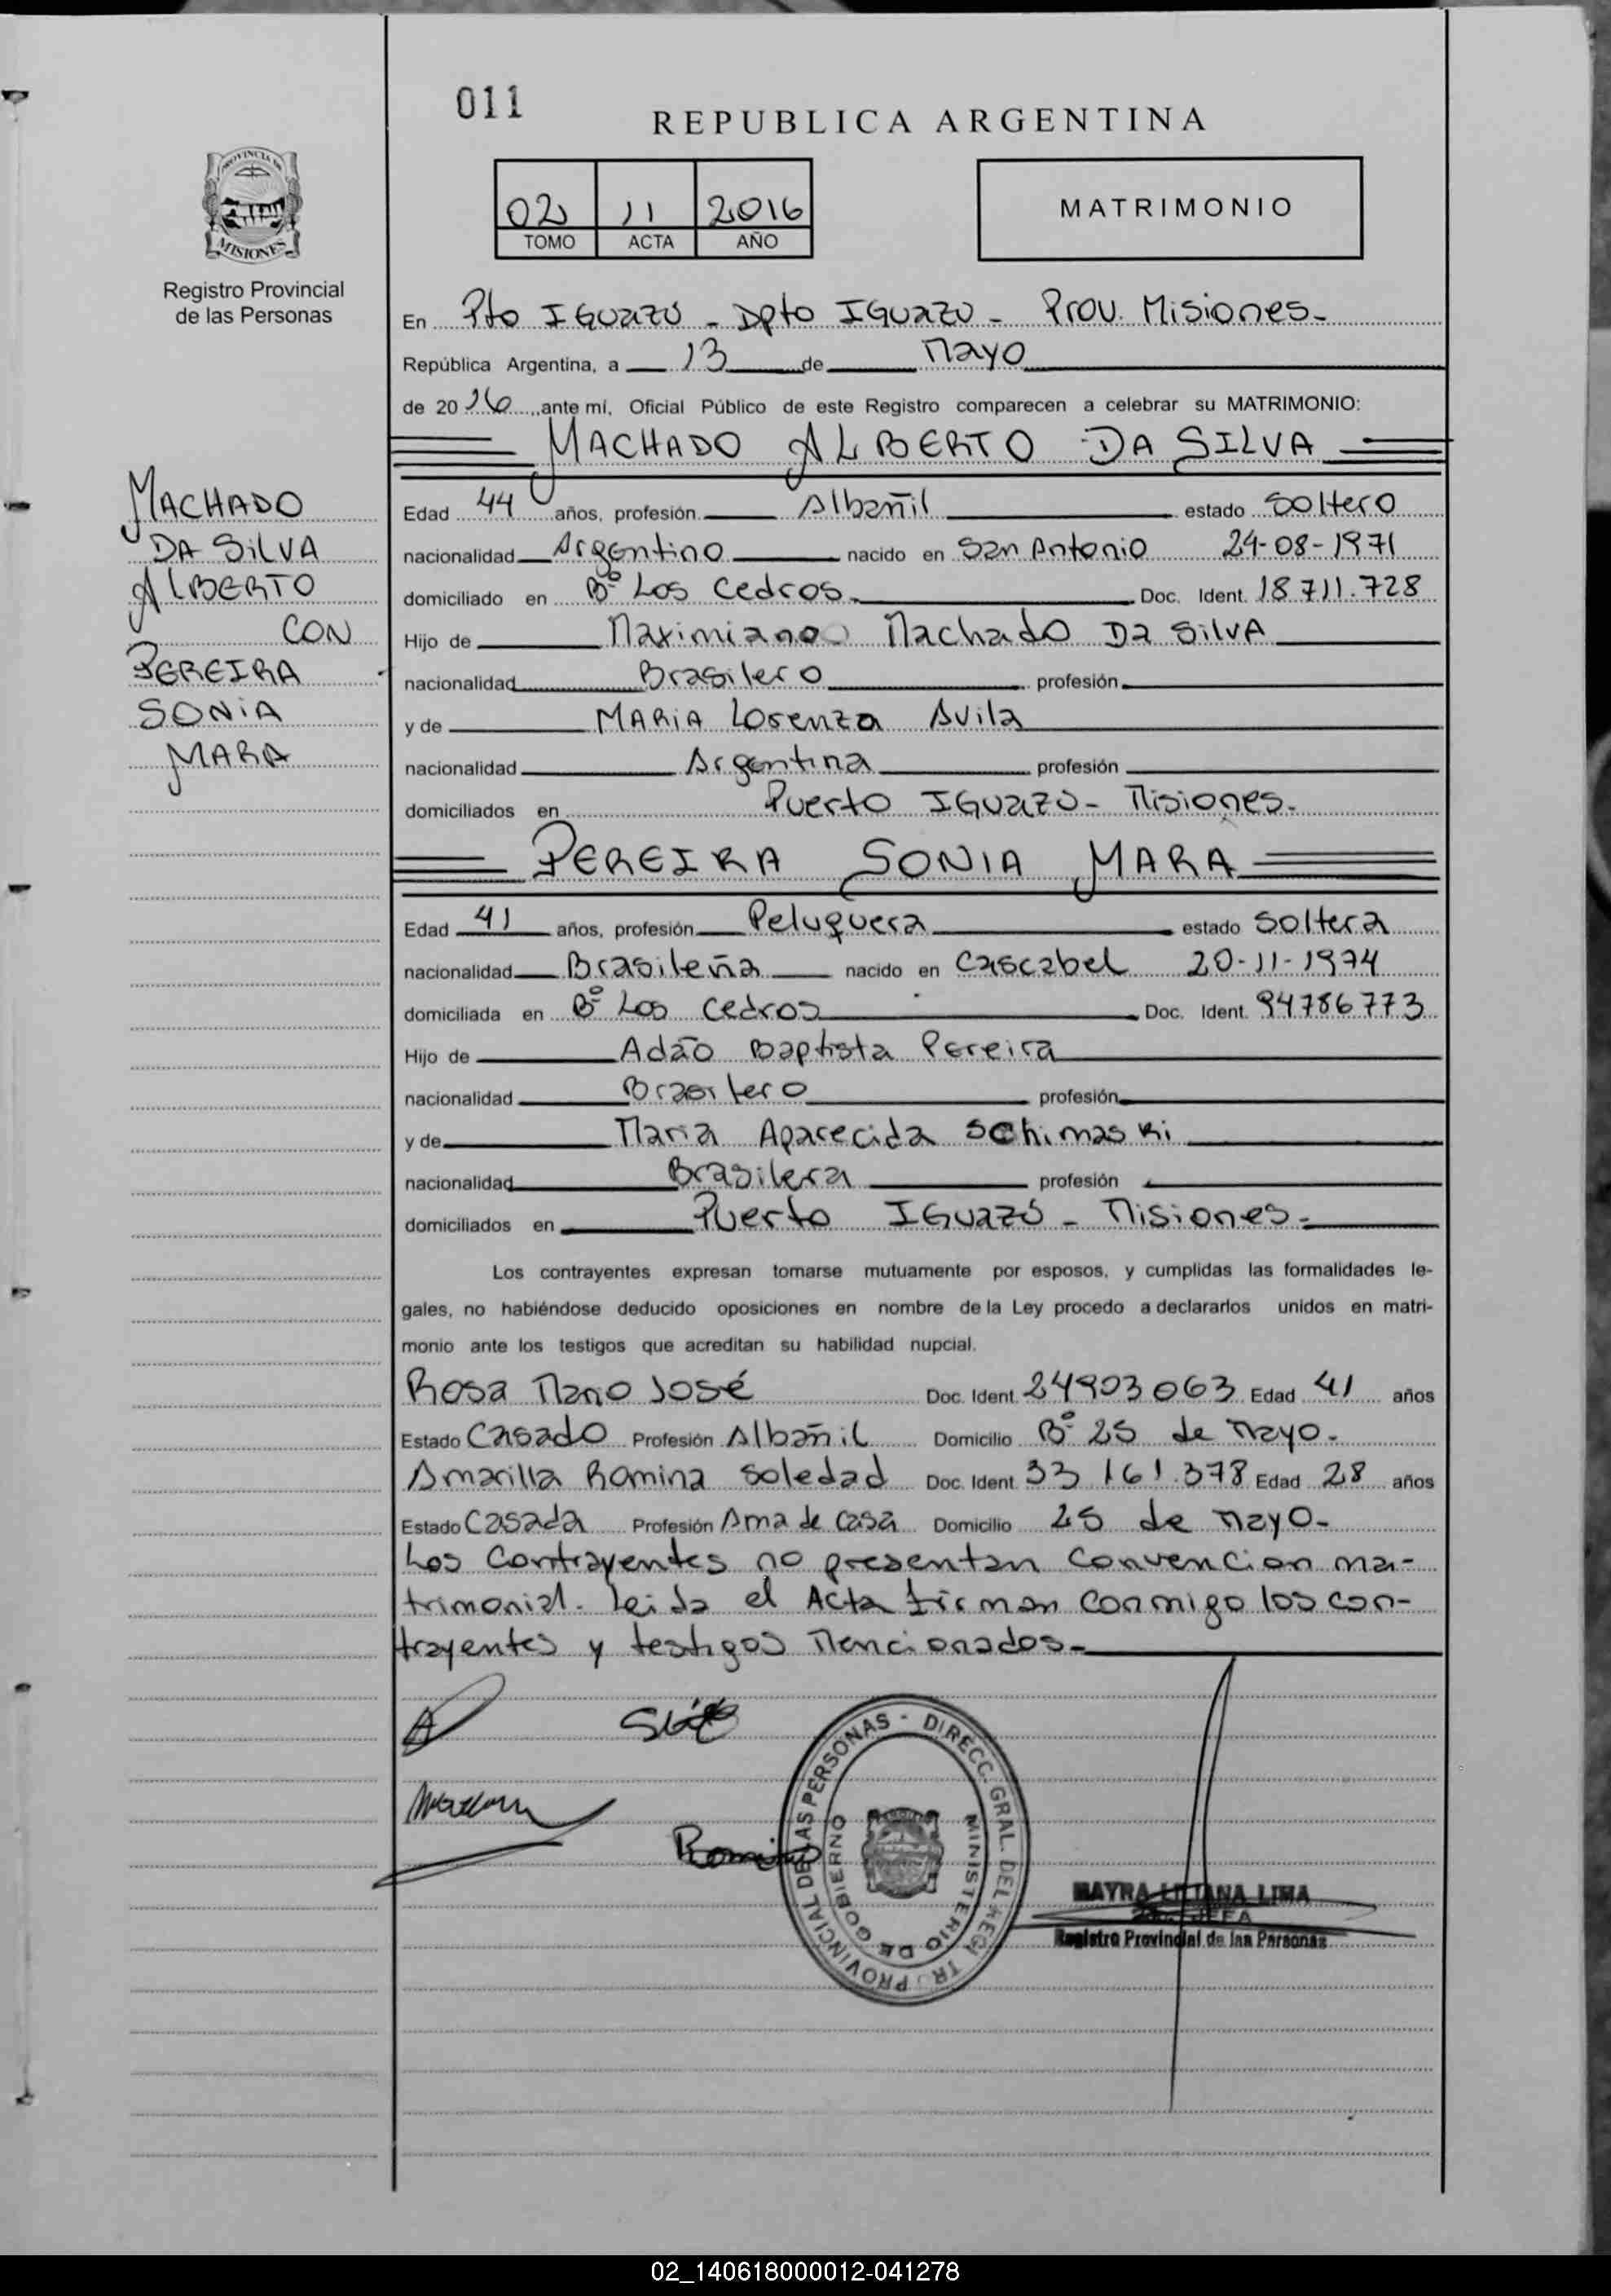 011
REPUBLICA ARGENTINA
02 11 2016
TOMO ACTA AÑO
MATRIMONIO
PROVINCIA DE
MISIONES
Registro Provincial
de las Personas
En Pto Iguazú - Dpto Iguazu - Prov. Misiones-
República Argentina, a 13 de Mayo
de 2016, ante mí, Oficial Público de este Registro comparecen a celebrar su MATRIMONIO:
MACHADO ALBERTO DA SILVA
Edad 44 años, profesión Albañil estado Soltero
nacionalidad Argentino nacido en San Antonio 24-08-1971
domiciliado en Bº Los Cedros. Doc. Ident. 18.711.728
Hijo de Maximiano Machado Da Silva
nacionalidad Brasilero profesión
y de MARIA Lorenza Avila
nacionalidad Argentina profesión
domiciliados en Puerto Iguazú - Misiones.
MACHADO
DA SILVA
ALBERTO
CON
PEREIRA
SONIA
MARA
PEREIRA SONIA MARA
Edad 41 años, profesión Peluquera estado Soltera
nacionalidad Brasileña nacido en Cascabel 20-11-1974
domiciliada en Bº Los Cedros Doc. Ident. 94786773
Hijo de Adão Baptista Pereira
nacionalidad Brasilero profesión
y de Maria Aparecida Schimaski
nacionalidad Brasilera profesión
domiciliados en Puerto Iguazú - Misiones-
Los contrayentes expresan tomarse mutuamente por esposos, y cumplidas las formalidades le-
gales, no habiéndose deducido oposiciones en nombre de la Ley procedo a declararlos unidos en matri-
monio ante los testigos que acreditan su habilidad nupcial.
Rosa Mario José Doc. Ident. 24903063 Edad 41 años
Estado Casado Profesión Albañil Domicilio Bº 25 de Mayo.
Amarilla Romina Soledad Doc. Ident. 33.161.378 Edad 28 años
Estado Casada Profesión Ama de Casa Domicilio 25 de Mayo-
Los Contrayentes no presentan Convencion ma-
trimonial. Leida el Acta firman conmigo los con-
trayentes y testigos Mencionados-
Romina
DIRECC. GRAL. DEL REGISTRO PROVINCIAL DE LAS PERSONAS -
MINISTERIO DE GOBIERNO
MAYRA LILIANA LIMA
JEFA
Registro Provincial de las Personas
02_140618000012-041278